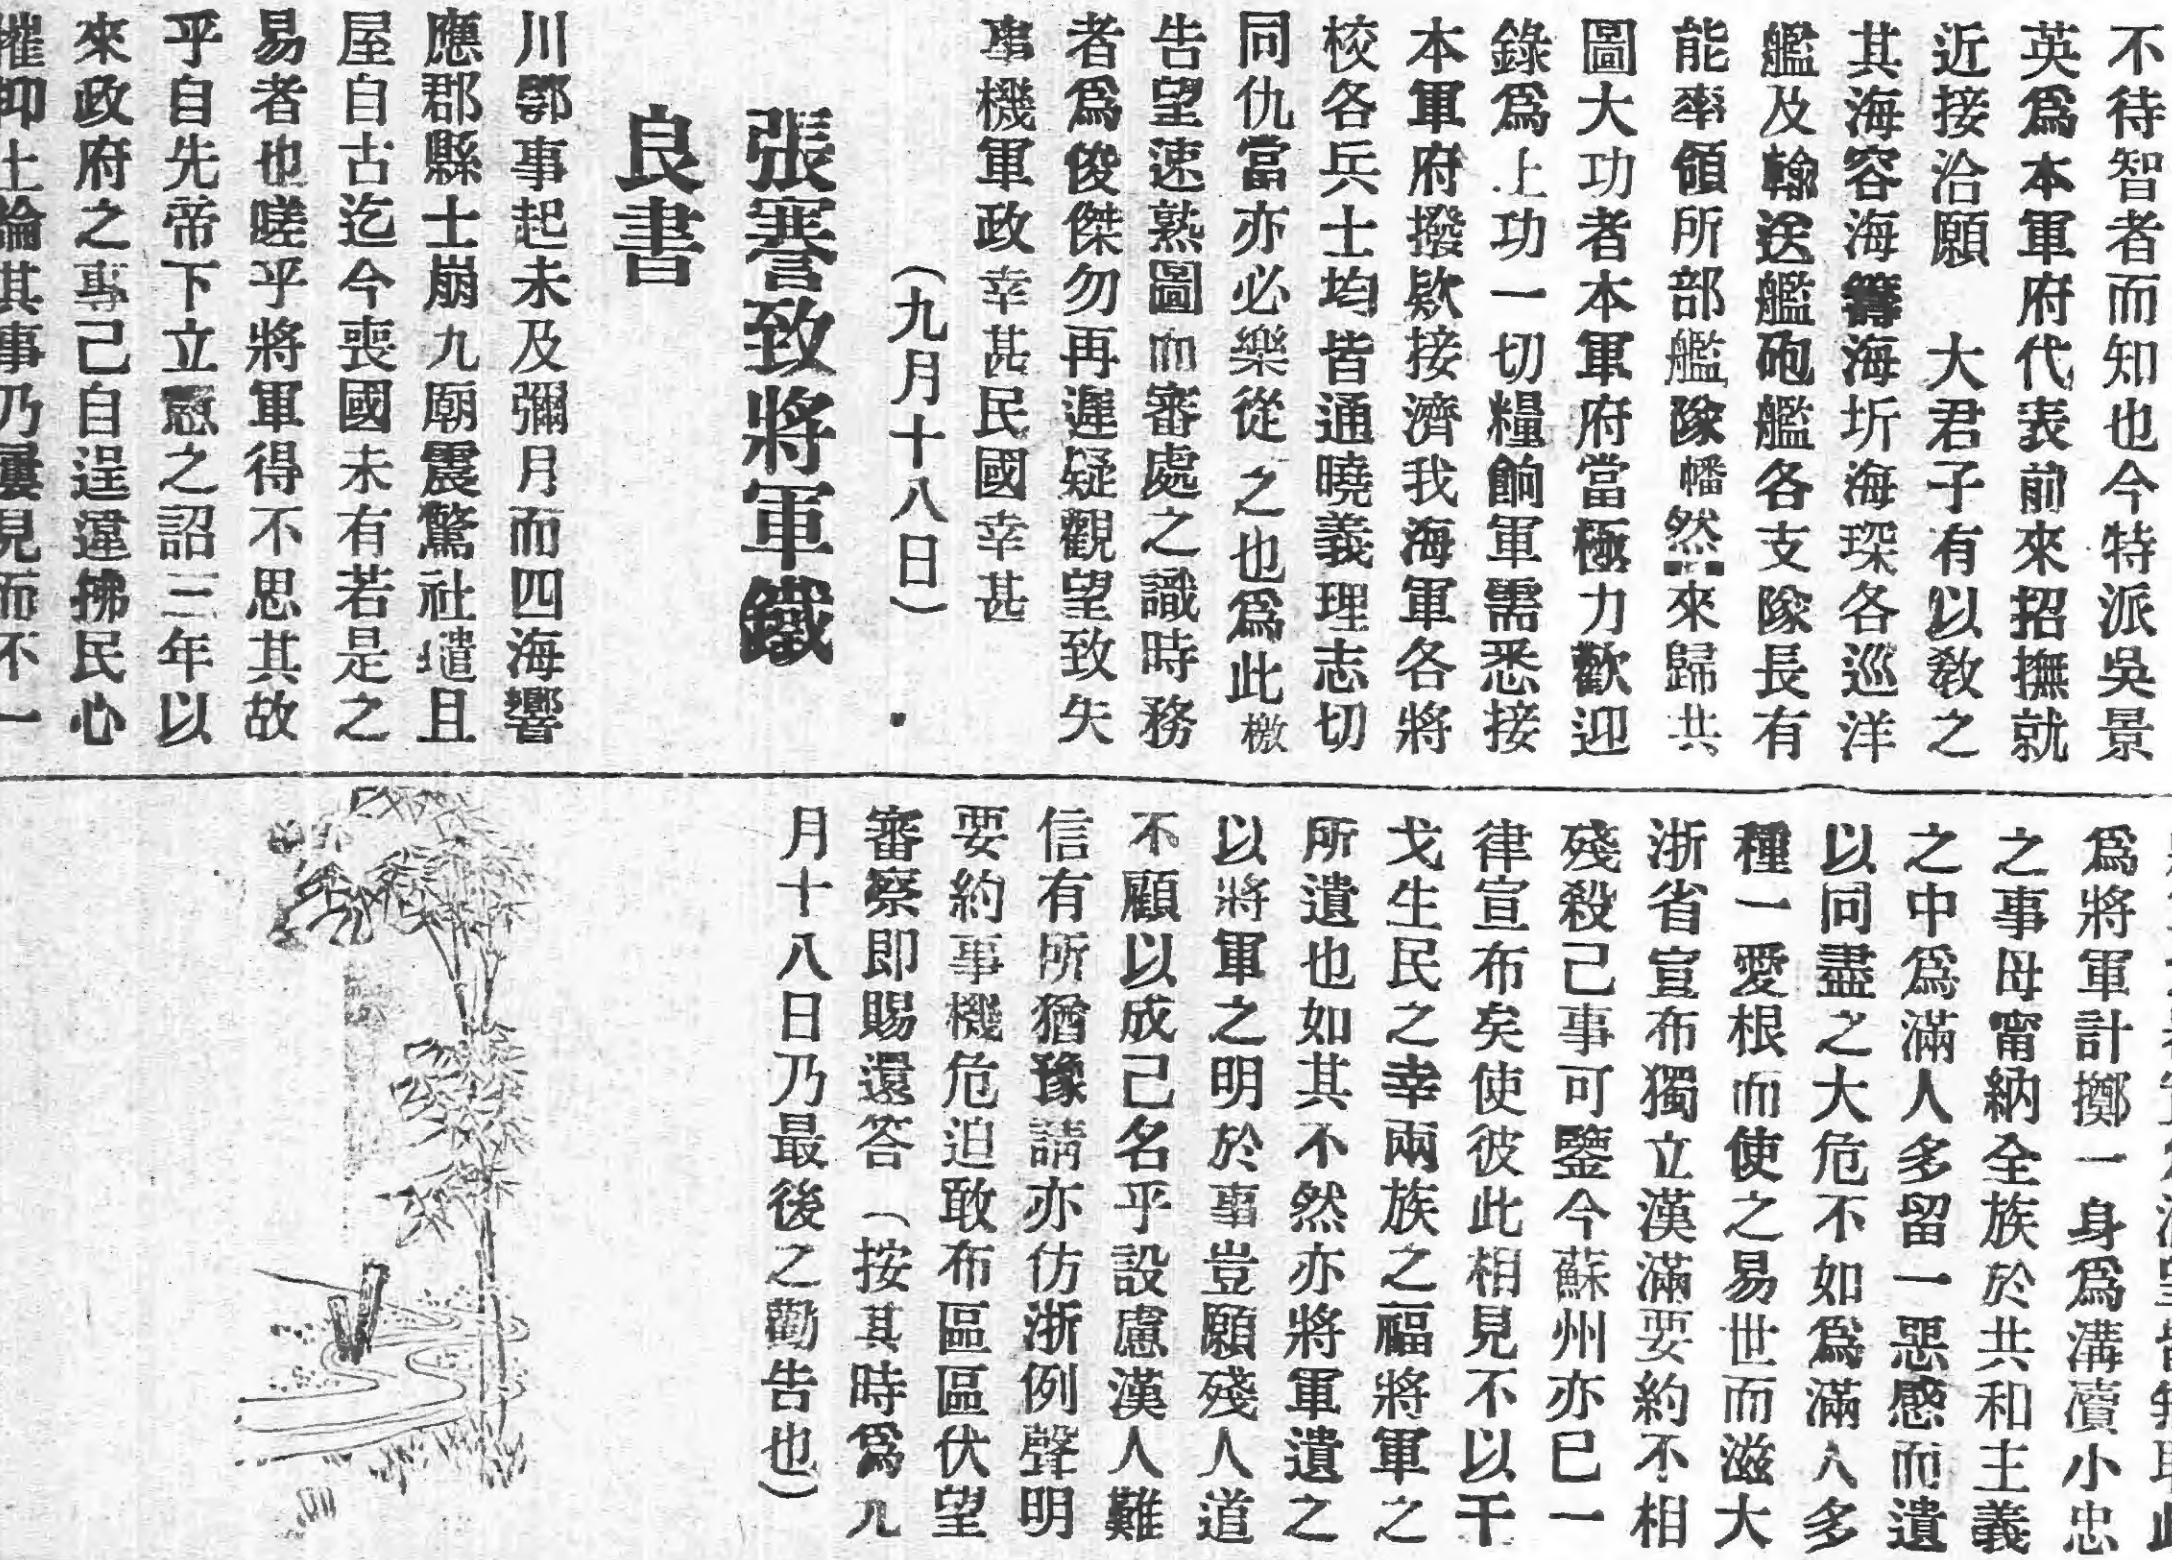 不待智者而知也今特派吳景
英爲本軍府代表前來招撫就
近接洽願　大君子有以教之
其海容海籌海圻海琛各巡洋
艦及輸送艦砲艦各支隊長有
能率領所部艦隊幡然來歸共
圖大功者本軍府當極力歡迎
錄爲上功一切糧餉軍需悉接
本軍府撥欵接濟我海軍各將
校各兵士均皆通曉義理志切
同仇當亦必樂從之也爲此檄
告望速熟圖而審處之識時務
者爲俊傑勿再遲疑觀望致失
事機軍政幸甚民國幸甚
（九月十八日）
張謇致將軍鐵
良書
川鄂事起未及彌月而四海響
應郡縣土崩九廟震驚社壝且
屋自古迄今喪國未有若是之
易者也嗟乎將軍得不思其故
乎自先帝下立憲之詔三年以
來政府之專己自逞違拂民心
摧抑士論其事乃屢見而不一
爲將軍計擲一身爲溝瀆小忠
之事毋甯納全族於共和主義
之中爲滿人多留一惡感而遺
以同盡之大危不如爲滿人多
種一愛根而使之易世而滋大
浙省宣布獨立漢滿要約不相
殘殺已事可鑒今蘇州亦已一
律宣布矣使彼此相見不以干
戈生民之幸兩族之福將軍之
所遺也如其不然亦將軍遺之
以將軍之明於事豈願殘人道
不顧以成己名乎設慮漢人難
信有所猶豫請亦仿浙例聲明
要約事機危迫敢布區區伏望
審察即賜還答（按其時爲九
月十八日乃最後之勸告也）